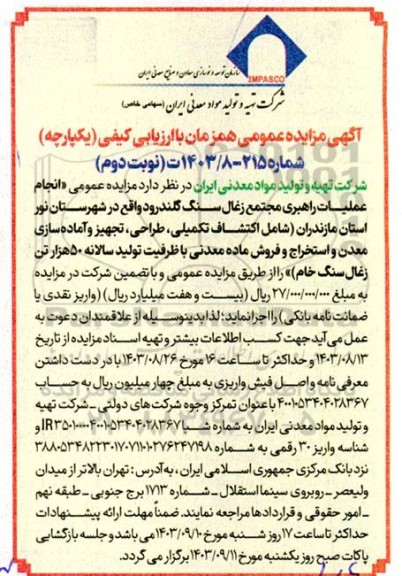 IMPASCO
سازمان توسعه و نوسازی معادن و صنایع معدنی ایران
شرکت تهیه و تولید مواد معدنی ایران (سهامی خاص)
آگهی مزایده عمومی همزمان با ارزیابی کیفی (یکپارچه)
شماره ۲۱۵-۱۴۰۳/۸ت (نوبت دوم)
شرکت تهیه و تولید مواد معدنی ایران در نظر دارد مزایده عمومی «انجام
عملیات راهبری مجتمع زغال سنگ گلندرود واقع در شهرستان نور
استان مازندران (شامل اکتشاف تکمیلی، طراحی، تجهیز و آماده‌سازی
معدن و استخراج و فروش ماده معدنی با ظرفیت تولید سالانه ۵۰هزار تن
زغال سنگ خام)» را از طریق مزایده عمومی و با تضمین شرکت در مزایده
به مبلغ ۲۷/۰۰۰/۰۰۰/۰۰۰ ریال (بیست و هفت میلیارد ریال) (واریز نقدی یا
ضمانت نامه بانکی) را اجرا نماید؛ لذا بدینوسیله از علاقمندان دعوت به
عمل می‌آید جهت کسب اطلاعات بیشتر و تهیه اسناد مزایده از تاریخ
۱۴۰۳/۰۸/۱۳ و حداکثر تا ساعت ۱۶ مورخ ۱۴۰۳/۰۸/۲۶ با در دست داشتن
معرفی نامه و اصل فیش واریزی به مبلغ چهار میلیون ریال به حساب
۴۰۰۱۰۵۳۴۰۴۰۲۸۳۶۷ با عنوان تمرکز وجوه شرکت‌های دولتی ـ شرکت تهیه
و تولید مواد معدنی ایران به شماره شبا و
شناسه واریز ۳۰ رقمی به شماره
نزد بانک مرکزی جمهوری اسلامی ایران، به آدرس: تهران بالاتر از میدان
ولیعصر ـ روبروی سینما استقلال ـ شماره ۱۷۱۳ برج جنوبی ـ طبقه نهم
ـ امور حقوقی و قراردادها مراجعه نمایند. ضمناً مهلت ارائه پیشنهادات
حداکثر تا ساعت ۱۷ روز شنبه مورخ ۱۴۰۳/۰۹/۱۰ می باشد و جلسه بازگشایی
پاکات صبح روز یکشنبه مورخ ۱۴۰۳/۰۹/۱۱ برگزار می گردد.